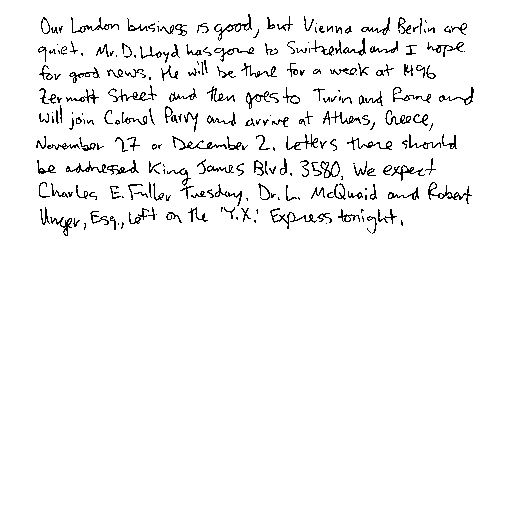 Our London business is good, but Vienna and Berlin are
quiet. Mr. D. Lloyd has gone to Switzerland and I hope
for good news. He will be there for a week at 1496
Zermott Street and then goes to Turin and Rome and
will join Colonel Parry and arrive at Athens, Greece,
November 27 or December 2. Letters there should
be addressed King James Blvd. 3580. We expect
Charles E. Fuller Tuesday. Dr. L. McQuaid and Robert
Unger, Esq., left on the 'Y.X.' Express tonight.